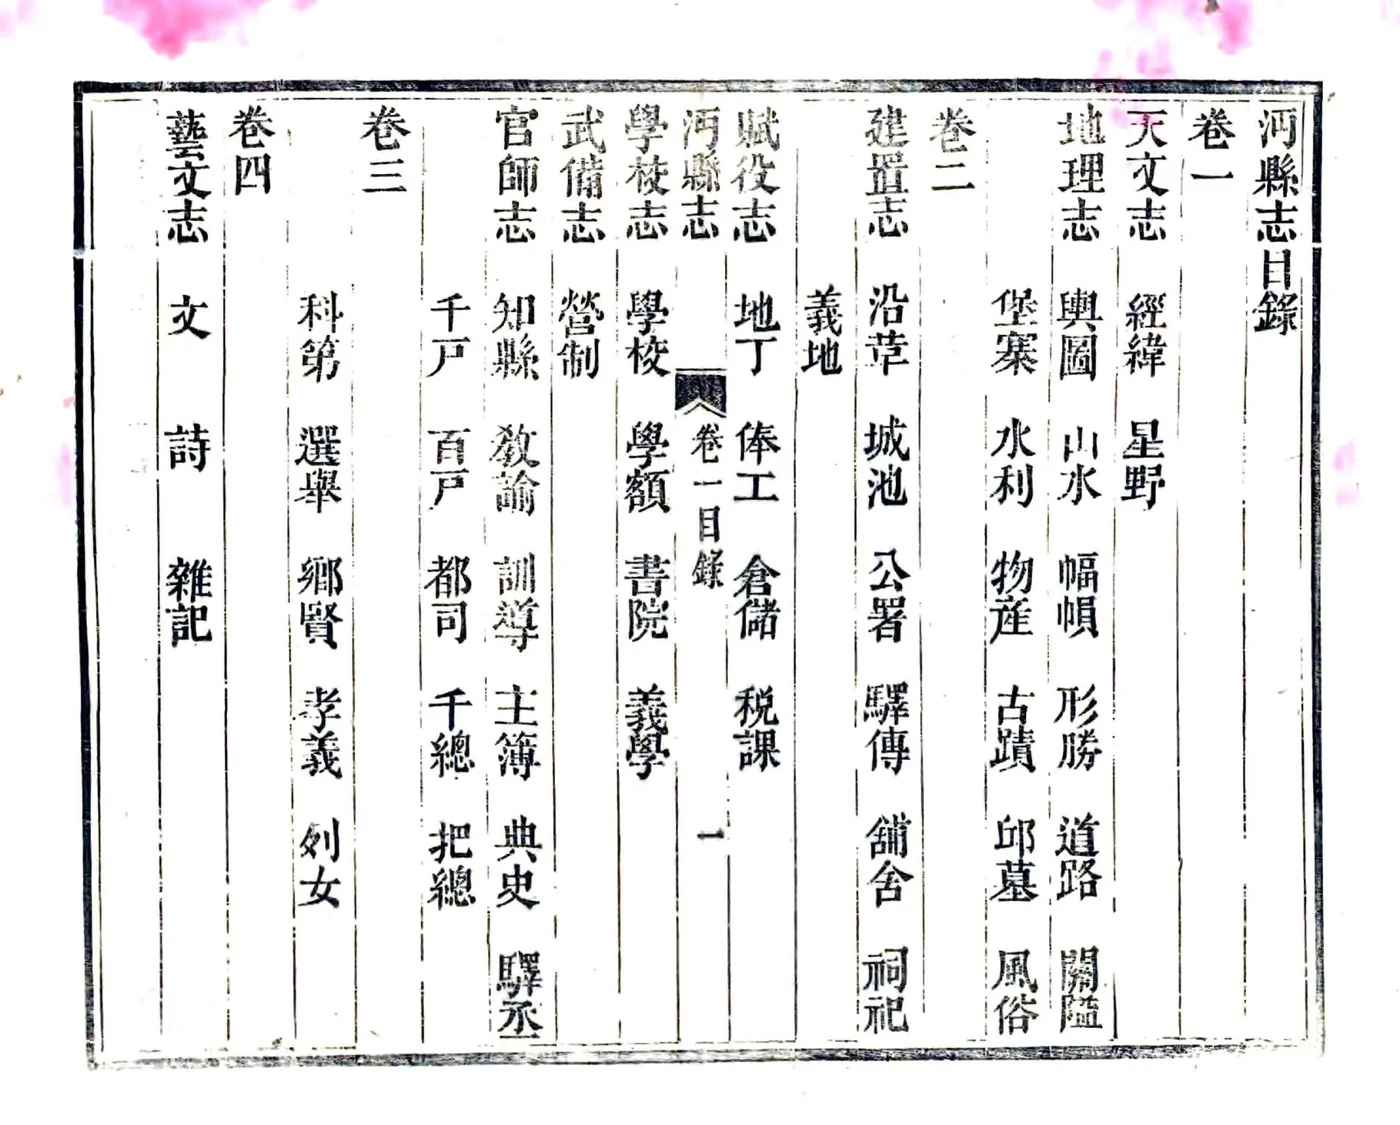 沔縣志目錄
卷一
天文志 經緯 星野
地理志 輿圖 山水 幅幀 形勝 道路 關隘
堡寨 水利 物産 古蹟 邱墓 風俗
卷二
建置志 沿革 城池 公署 驛傳 舖舍 祠祀
義地
賦役志 地丁 俸工 倉儲 税課
沔縣志 卷一目錄 一
學校志 學校 學額 書院 義學
武備志 營制
官師志 知縣 教諭 訓導 主簿 典史 驛丞
千戸 百戸 都司 千總 把總
卷三
科第 選舉 鄉賢 孝義 列女
卷四
藝文志 文 詩 雜記